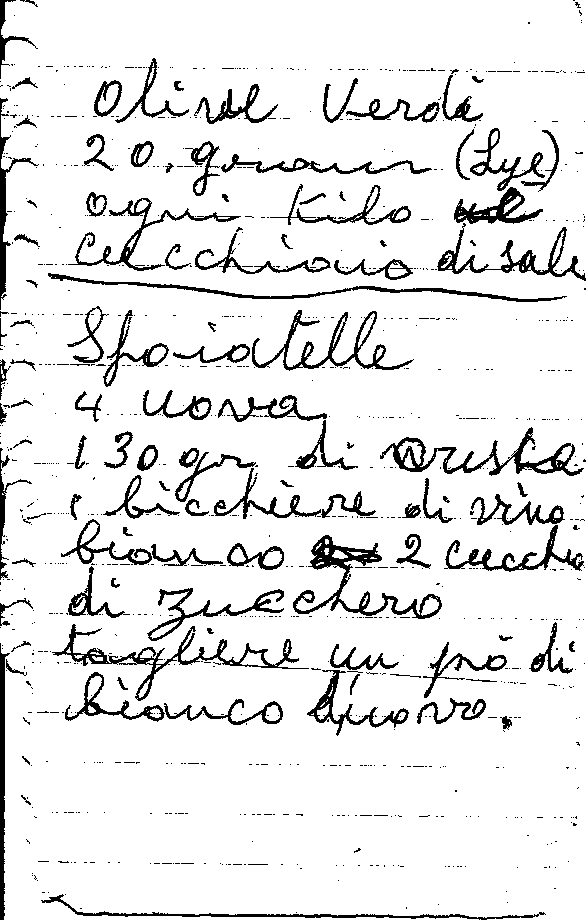 Olive Verdi
20. grammi (Lye)
ogni Kilo
cucchiaio di sale
Spoiatelle
4 uova
130 gr di
1 bicchiere di vino
bianco 2 cucchia
di zucchero
togliere un pò di
bianco d'uovo.